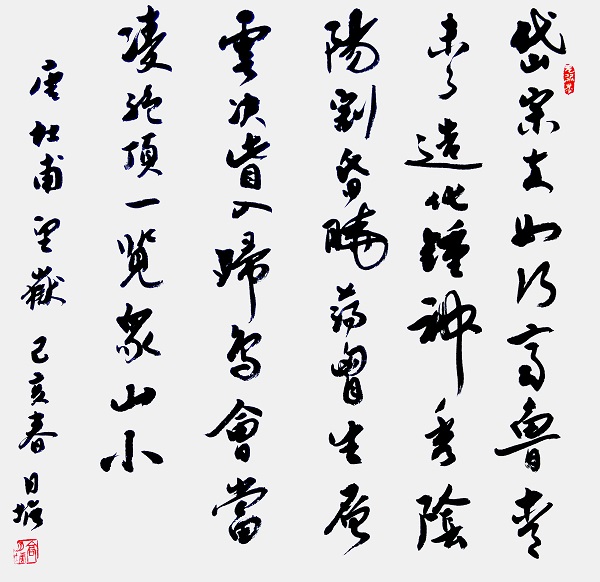 岱宗夫如何齊魯青
未了造化鍾神秀陰
陽割昏曉蕩胷生層
雲决眥入歸鳥會當
凌絶頂一覽衆山小
唐杜甫望嶽 己亥春